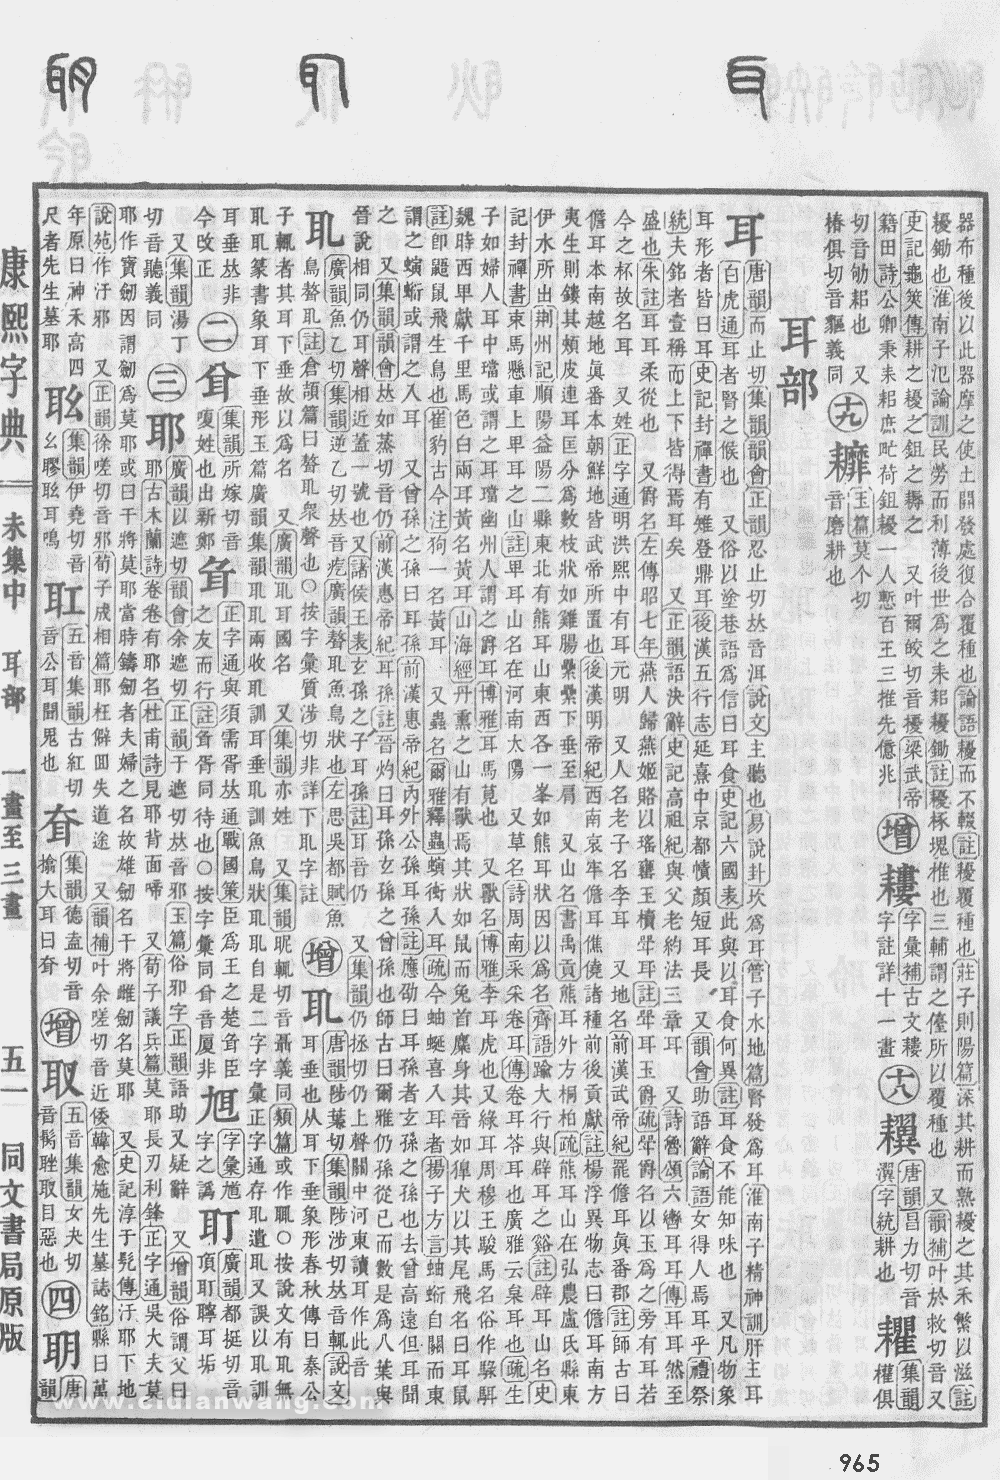 器布種後以此器摩之使土開發處復合覆種也論語耰而不輟註耰覆種也莊子則陽篇深其耕而熟耰之其禾繁以滋註
耰鋤也淮南子氾論訓民勞而利薄後世爲之耒耜耰鋤註耰椓塊椎也三輔謂之儓所以覆種也 又韻補叶於救切音又
史記龜筴傳耕之耰之鉏之耨之 又叶爾皎切音擾梁武帝 增 耬 字彙補古文耬 字註詳十一畫 十八 耰 唐韻昌力切音
籍田詩公卿秉耒耜庶甿荷鉏耰一人慙百王三推先億兆
切音劬耜也 又 十九 耱 玉篇莫个切 音磨耕也
椿俱切音驅義同
耳部
耳 唐韻而止切集韻韻會正韻忍止切𠀤音洱說文主聽也易說卦坎爲耳管子水地篇腎發爲耳淮南子精神訓肝主耳
白虎通耳者腎之候也 又俗以塗巷語爲信曰耳食史記六國表此與以耳食何異註耳食不能知味也 又凡物象
耳形者皆曰耳史記封禪書有雉登鼎耳後漢五行志延熹中京都幘顏短耳長 又韻會助語辭論語女得人焉耳乎禮祭
統夫銘者壹稱而上下皆得焉耳矣 又正韻語決辭史記高祖紀與父老約法三章耳 又詩魯頌六轡耳耳傳耳耳然至
盛也朱註耳耳柔從也 又爵名左傳昭七年燕人歸燕姬賂以瑤罋玉櫝斝耳註斝耳玉爵疏斝爵名以玉爲之旁有耳若
今之杯故名耳 又姓正字通明洪熙中有耳元明 又人名老子名李耳 又地名前漢武帝紀罷儋耳眞番郡註師古曰
儋耳本南越地眞番本朝鮮地皆武帝所置也後漢明帝紀西南哀牢儋耳僬僥諸種前後貢獻註楊浮異物志曰儋耳南方
夷生則鏤其頰皮連耳匡分爲數枝狀如雞腸纍纍下垂至肩 又山名書禹貢熊耳外方桐柏疏熊耳山在弘農盧氏縣東
伊水所出荆州記順陽益陽二縣東北有熊耳山東西各一峯如熊耳狀因以爲名齊語踰大行與辟耳之谿註辟耳山名史
記封禪書束馬懸車上𤰞耳之山註𤰞耳山名在河南太陽 又草名詩周南采采卷耳傳卷耳苓耳也廣雅云枲耳也疏生
子如婦人耳中璫或謂之耳璫幽州人謂之爵耳博雅耳馬莧也 又獸名博雅李耳虎也又綠耳周穆王駿馬名俗作騄駬
魏時西𤰞獻千里馬色白兩耳黃名黃耳山海經丹熏之山有獸焉其狀如鼠而兔首麋身其音如獋犬以其尾飛名曰耳鼠
註卽鼯鼠飛生鳥也崔豹古今注狗一名黃耳 又蟲名爾雅釋蟲螾衝入耳疏今蚰蜒喜入耳者揚子方言蚰蜒自關而東
謂之螾蜥或謂之入耳 又曾孫之孫曰耳孫前漢惠帝紀內外公孫耳孫註應劭曰耳孫者玄孫之子也去曾高遠但耳聞
之 又集韻韻會𠀤如蒸切音仍前漢惠帝紀耳孫註晉灼曰耳孫玄孫之曾孫也師古曰爾雅仍孫從己而數是爲八葉與
晉說相同仍耳聲相近蓋一號也又諸侯王表玄孫之子耳孫註耳音仍 又集韻仍拯切仍上聲關中河東讀耳作此音
耴 廣韻魚乙切集韻逆乙切𠀤音疙廣韻聲耴魚鳥狀也左思吳都賦魚
鳥聱耴註倉頡篇曰聱耴衆聲也○按字彙質涉切非詳下耴字註 增 耴 唐韻陟葉切集韻陟涉切𠀤音輒說文
耳垂也从耳下垂象形春秋傳曰秦公
子輒者其耳下垂故以爲名 又廣韻耴耳國名 又集韻亦姓 又集韻昵輒切音聶義同類篇或作䎳○按說文有耴無
耴耴篆書象耳下垂形玉篇廣韻集韻耴耴兩收耴訓耳垂耴訓魚鳥狀耴耴自是二字字彙正字通存耴遺耴又誤以耴訓
耳垂𠀤非 二 耷 集韻所嫁切音 嗄姓也出新鄭 耷 正字通與須需胥𠀤通戰國策臣爲王之楚耷臣 之友而行註耷胥同待也○按字彙同耷音厦非 旭 字彙馗 字之譌 耵 廣韻都挺切音 頂耵聹耳垢
今改正
又集韻湯丁
切音聽義同 三 耶 廣韻以遮切韻會余遮切正韻于遮切𠀤音邪玉篇俗邪字正韻語助又疑辭 又增韻俗謂父曰
耶古木蘭詩卷卷有耶名杜甫詩見耶背面啼 又荀子議兵篇莫耶長刃利鋒正字通吳大夫莫
耶作寶劒因謂劒爲莫耶或曰干將莫耶當時鑄劒者夫婦之名故雄劒名干將雌劒名莫耶 又史記淳于髡傳汙耶下地
說苑作汙邪 又正韻徐嗟切音邪荀子成相篇耶枉僻囬失道途 又韻補叶余嗟切音近倭韓愈施先生墓誌銘縣曰萬
年原曰神禾高四
尺者先生墓耶 𦔼 集韻伊堯切音 幺膠𦔼耳鳴 䎺 五音集韻古紅切 音公耳聞鬼也 𦕈 集韻德盍切音 揄大耳曰𦕈 增 取 五音集韻女夬切 音䯀䏨取目惡也 四 明 唐 韻
康熙字典 未集中 耳部 一畫至三畫 五一 同文書局原版
www.cidianwang.com
965